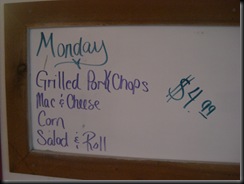 Monday
Grilled Pork Chops
Mac & Cheese
Corn
Salad & Roll
$4.99